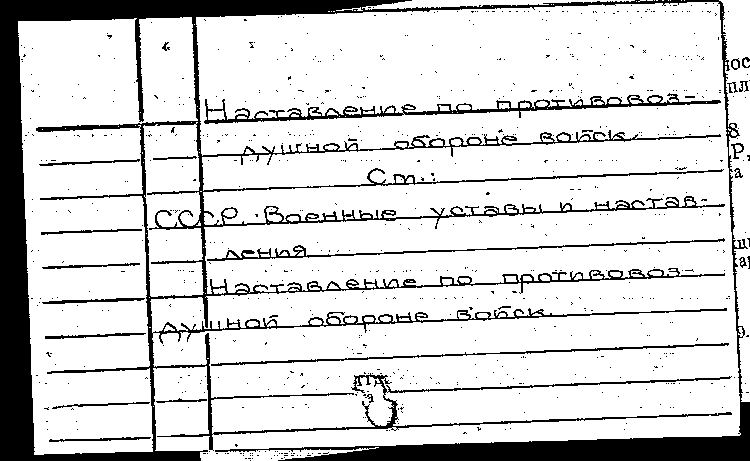 Наставление по противовоз-
душной обороне войск
См.:
СССР. Военные уставы и настав-
ления
Наставление по противовоз-
душной обороне войск.